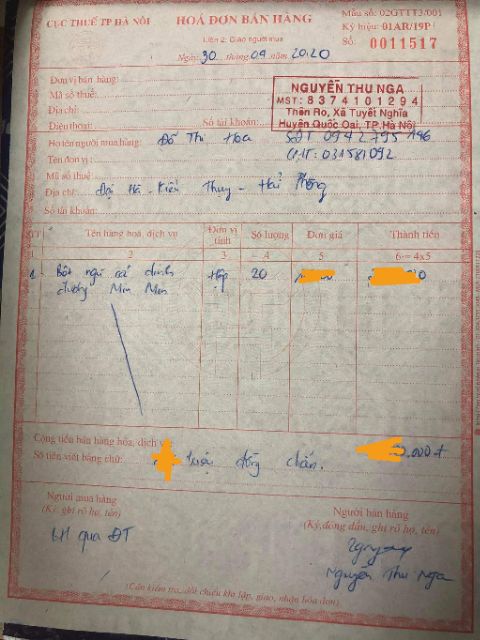 CỤC THUẾ TP HÀ NỘI
HOÁ ĐƠN BÁN HÀNG
Mẫu số: 02GTTT3/001
Liên 2: Giao người mua
Ký hiệu: 01AR/19P
Số: 0011517
Ngày 30 tháng 09 năm 2020
Đơn vị bán hàng:
Mã số thuế:
Địa chỉ:
Điện thoại: Số tài khoản:
NGUYỄN THU NGA
MST: 8374101294
Thôn Ro, Xã Tuyết Nghĩa
Huyện Quốc Oai, TP.Hà Nội
Họ tên người mua hàng: Đỗ Thị Hoa SĐT 0942795196
Tên đơn vị: CMT: 031581092
Mã số thuế
Địa chỉ: Đại Hà - Kiến Thụy - Hải Phòng
Số tài khoản:
STT Tên hàng hoá, dịch vụ Đơn vị tính Số lượng Đơn giá Thành tiền
1 2 3 4 5 6= 4x5
1 Bột ngũ cốc dinh Hộp 20
dưỡng Min Min
Cộng tiền bán hàng hóa, dịch vụ .000đ
Số tiền viết bằng chữ: triệu đồng chẵn.
Người mua hàng
(Ký, ghi rõ họ, tên)
Người bán hàng
(Ký, đóng dấu, ghi rõ họ, tên)
BH qua ĐT
Nguyễn Thu Nga
(Cần kiểm tra, đối chiếu khi lập, giao, nhận hóa đơn)